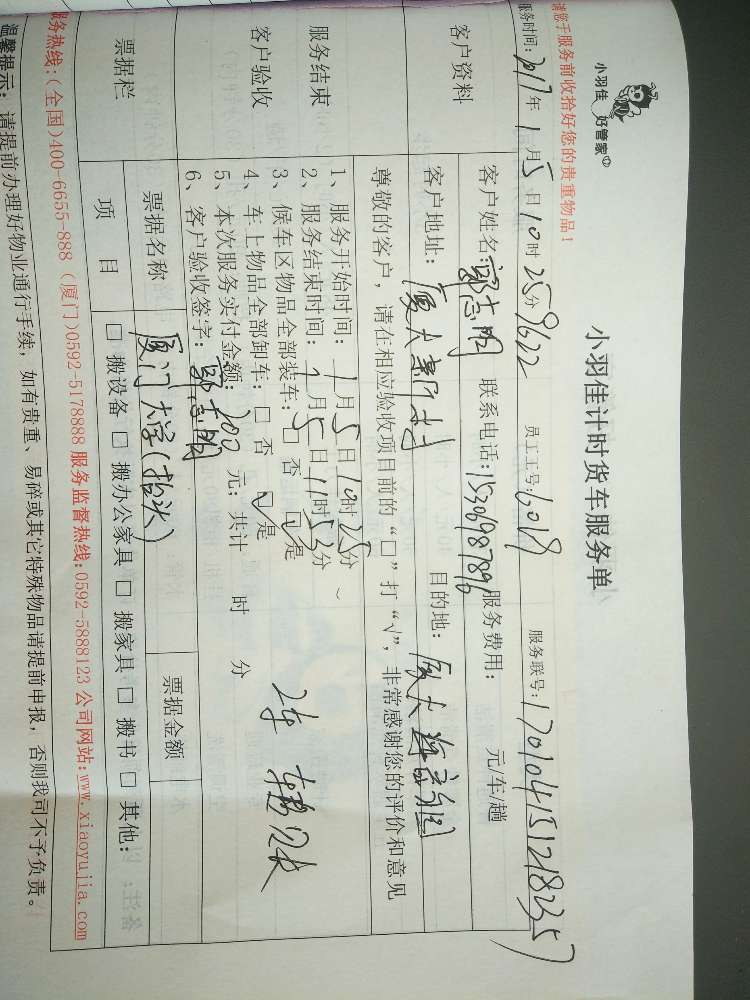 小羽佳 好管家
小羽佳计时货车服务单
请您于服务前收拾好您的贵重物品！
服务时间：2017年1月5日10时25分 9622 员工工号：6019 服务联号：1701041512182357
客户资料 客户姓名：郭志明 联系电话：15306987896 服务费用： 元/车/趟
客户地址： 厦大 目的地：厦大
尊敬的客户，请在相应验收项目前的“□”打“√”，非常感谢您的评价和意见
服务结束
客户验收
1、服务开始时间：1月5日10时25分~
2、服务结束时间：1月5日11时53分
3、候车区物品全部装车：□ 否 ☑ 是
4、车上物品全部卸车：□ 否 ☑ 是
5、本次服务实付金额：200 元；共计 时 分
6、客户验收签字：郭志明
2车
票据栏 票据名称 厦门大学 票据金额
项 目 □ 搬设备 □ 搬办公家具 □ 搬家具 □ 搬书 □ 其他：
服务热线：(全国)400-6655-888 (厦门)0592-5178888 服务监督热线：0592-5888123 公司网站：www.xiaoyujia.com
温馨提示：请提前办理好物业通行手续，如有贵重、易碎或其它特殊物品请提前申报，否则我司不予负责。